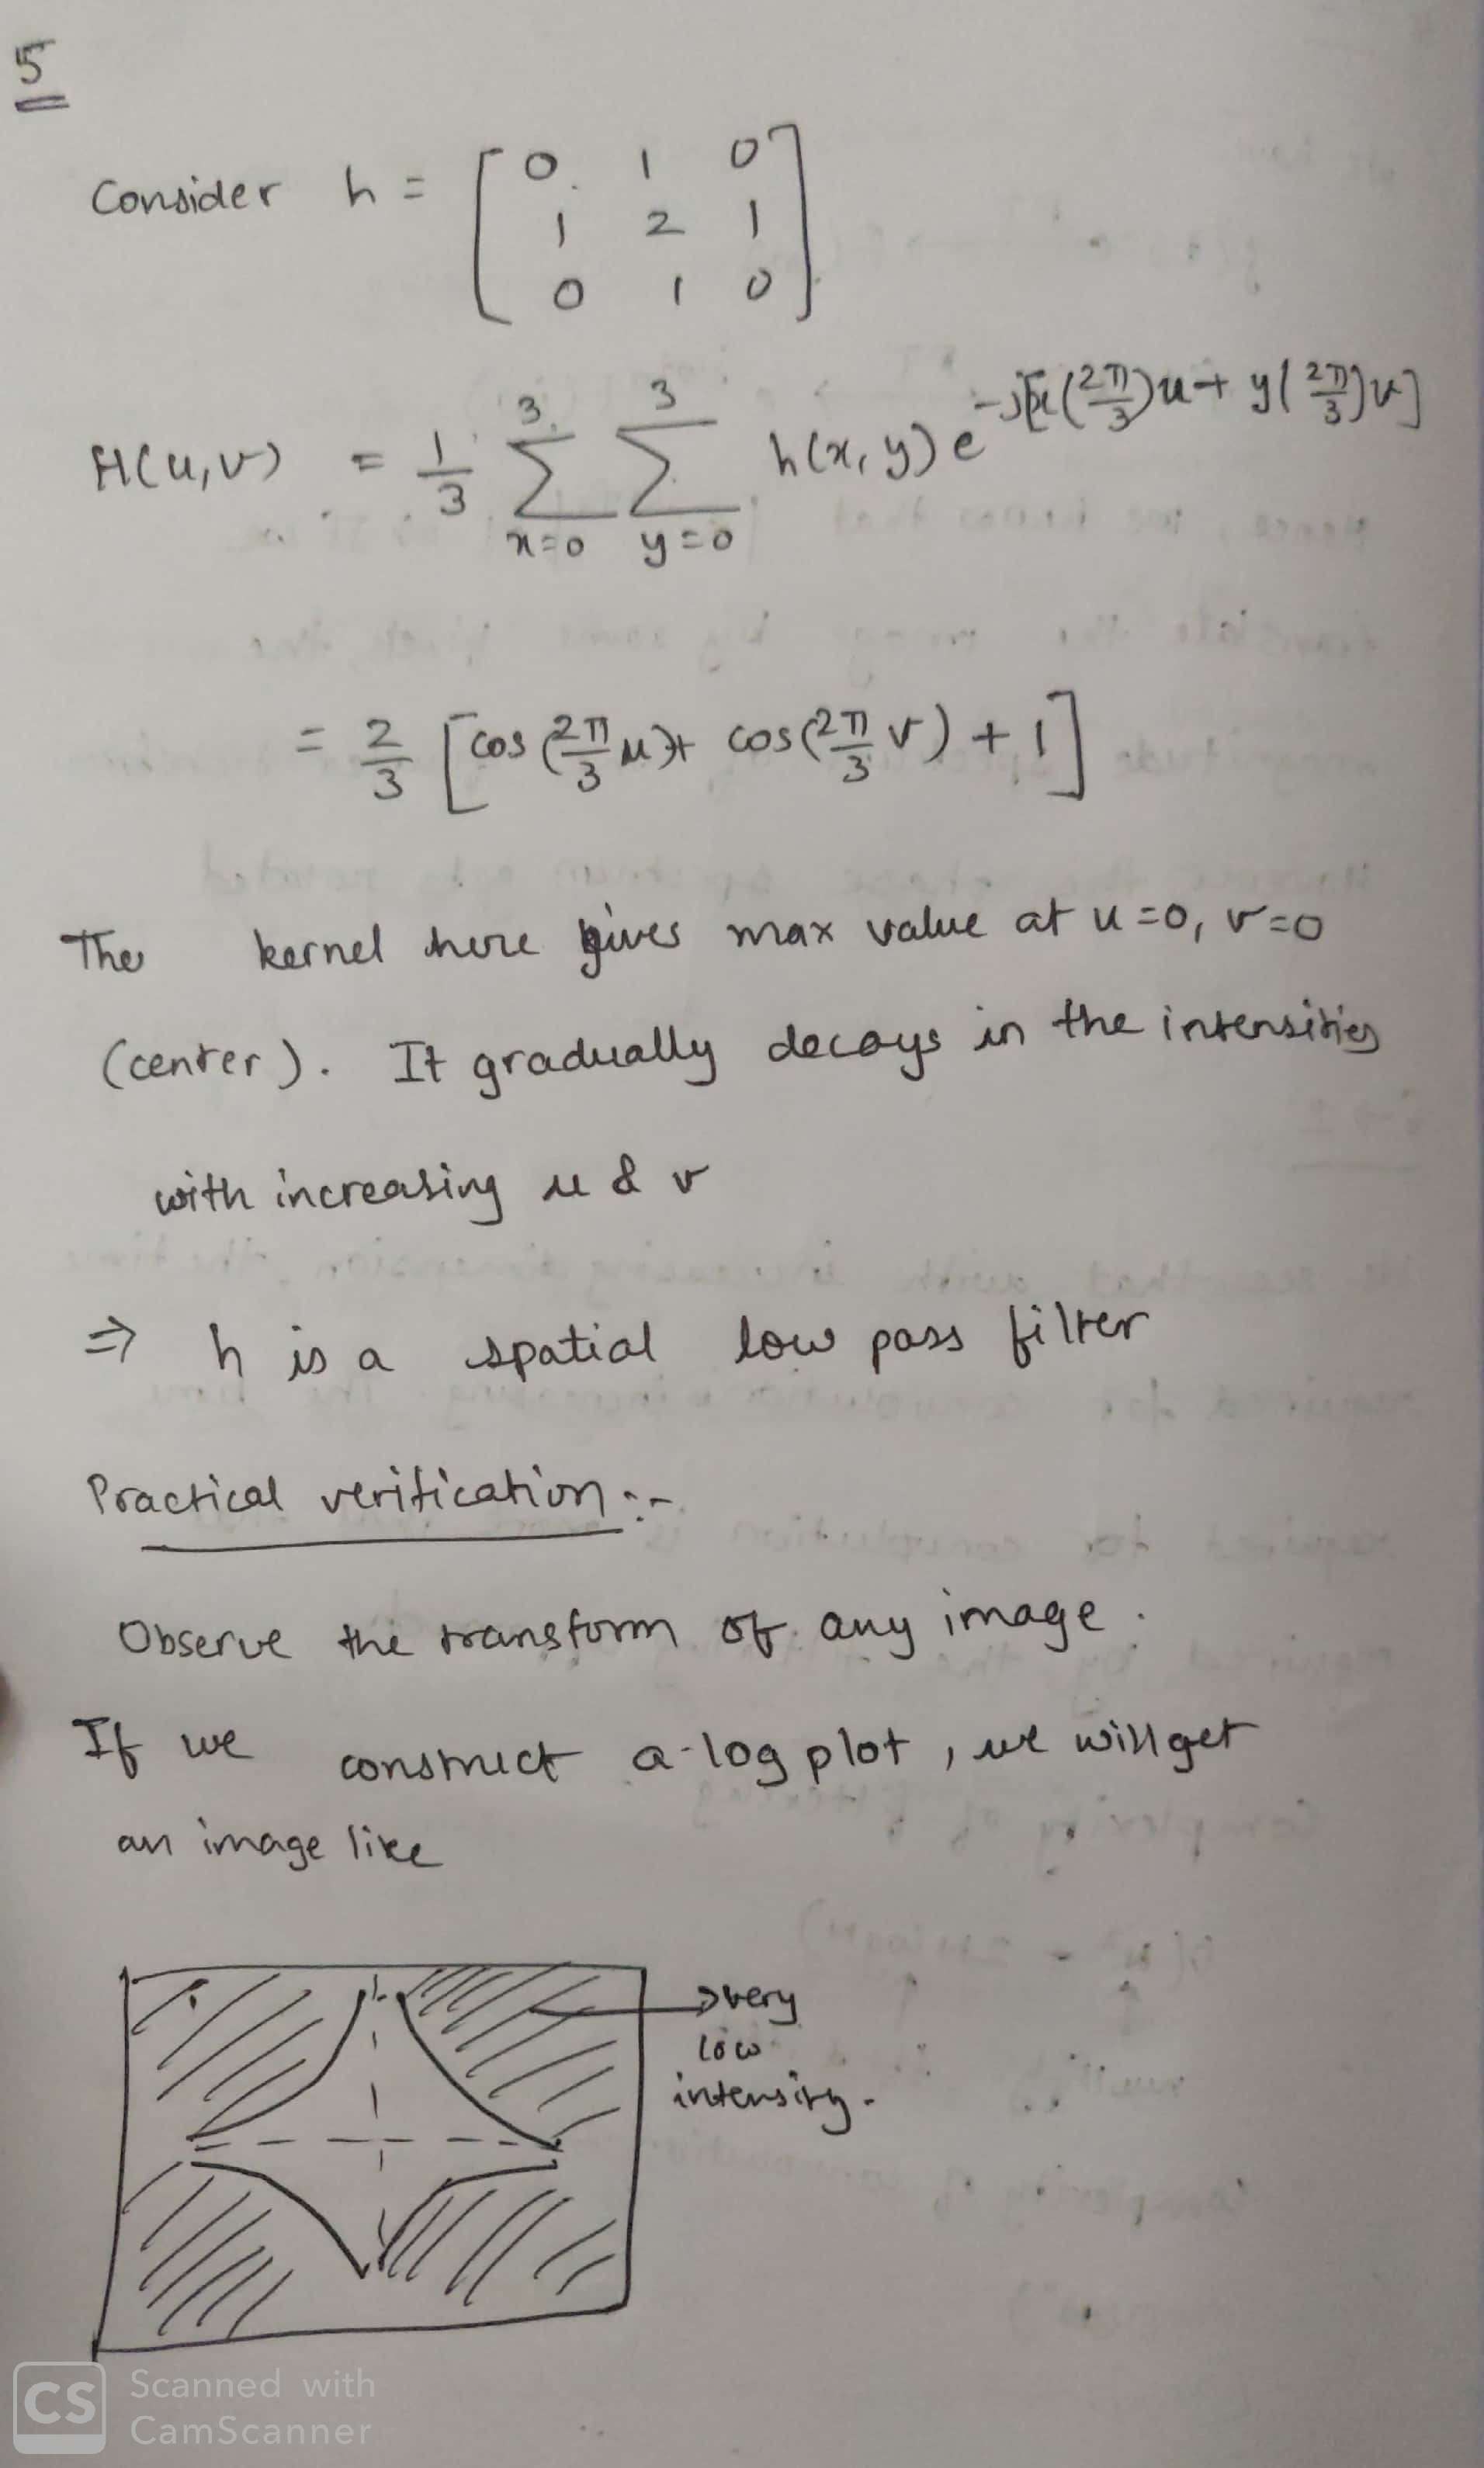 5
Consider h = [ 0 1 0
1 2 1
0 1 0 ]
H(u,v) = 1/3 Σ_{x=0}^{3} Σ_{y=0}^{3} h(x,y) e^{-j[x(2π/3)u + y(2π/3)v]}
= 2/3 [cos(2π/3 u) + cos(2π/3 v) + 1]
The kernel here gives max value at u=0, v=0
(center). It gradually decays in the intensities
with increasing u & v
⇒ h is a spatial low pass filter
Practical verification :-
Observe the transform of any image.
If we construct a log plot, we will get
an image like
→ very
low
intensity.
CS Scanned with
CamScanner